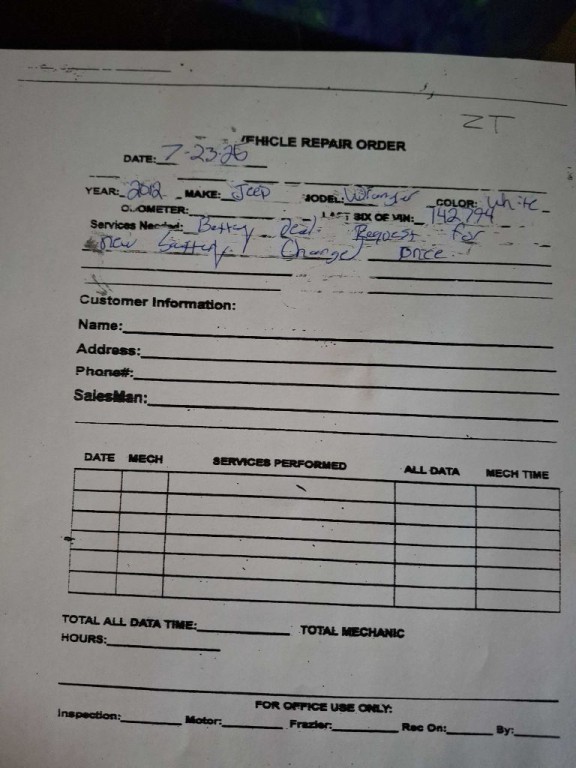 ZT
VEHICLE REPAIR ORDER
DATE: 7-23-26
YEAR: 2012 MAKE: Jeep MODEL: Wrangler COLOR: White
ODOMETER: LAST SIX OF VIN: 142794
Services Needed: Battery Dead. Request for
new battery. Change Price
Customer Information:
Name:
Address:
Phone#:
SalesMan:
DATE MECH SERVICES PERFORMED ALL DATA MECH TIME
TOTAL ALL DATA TIME: TOTAL MECHANIC
HOURS:
FOR OFFICE USE ONLY:
Inspection: Motor: Frazier: Rec On: By: